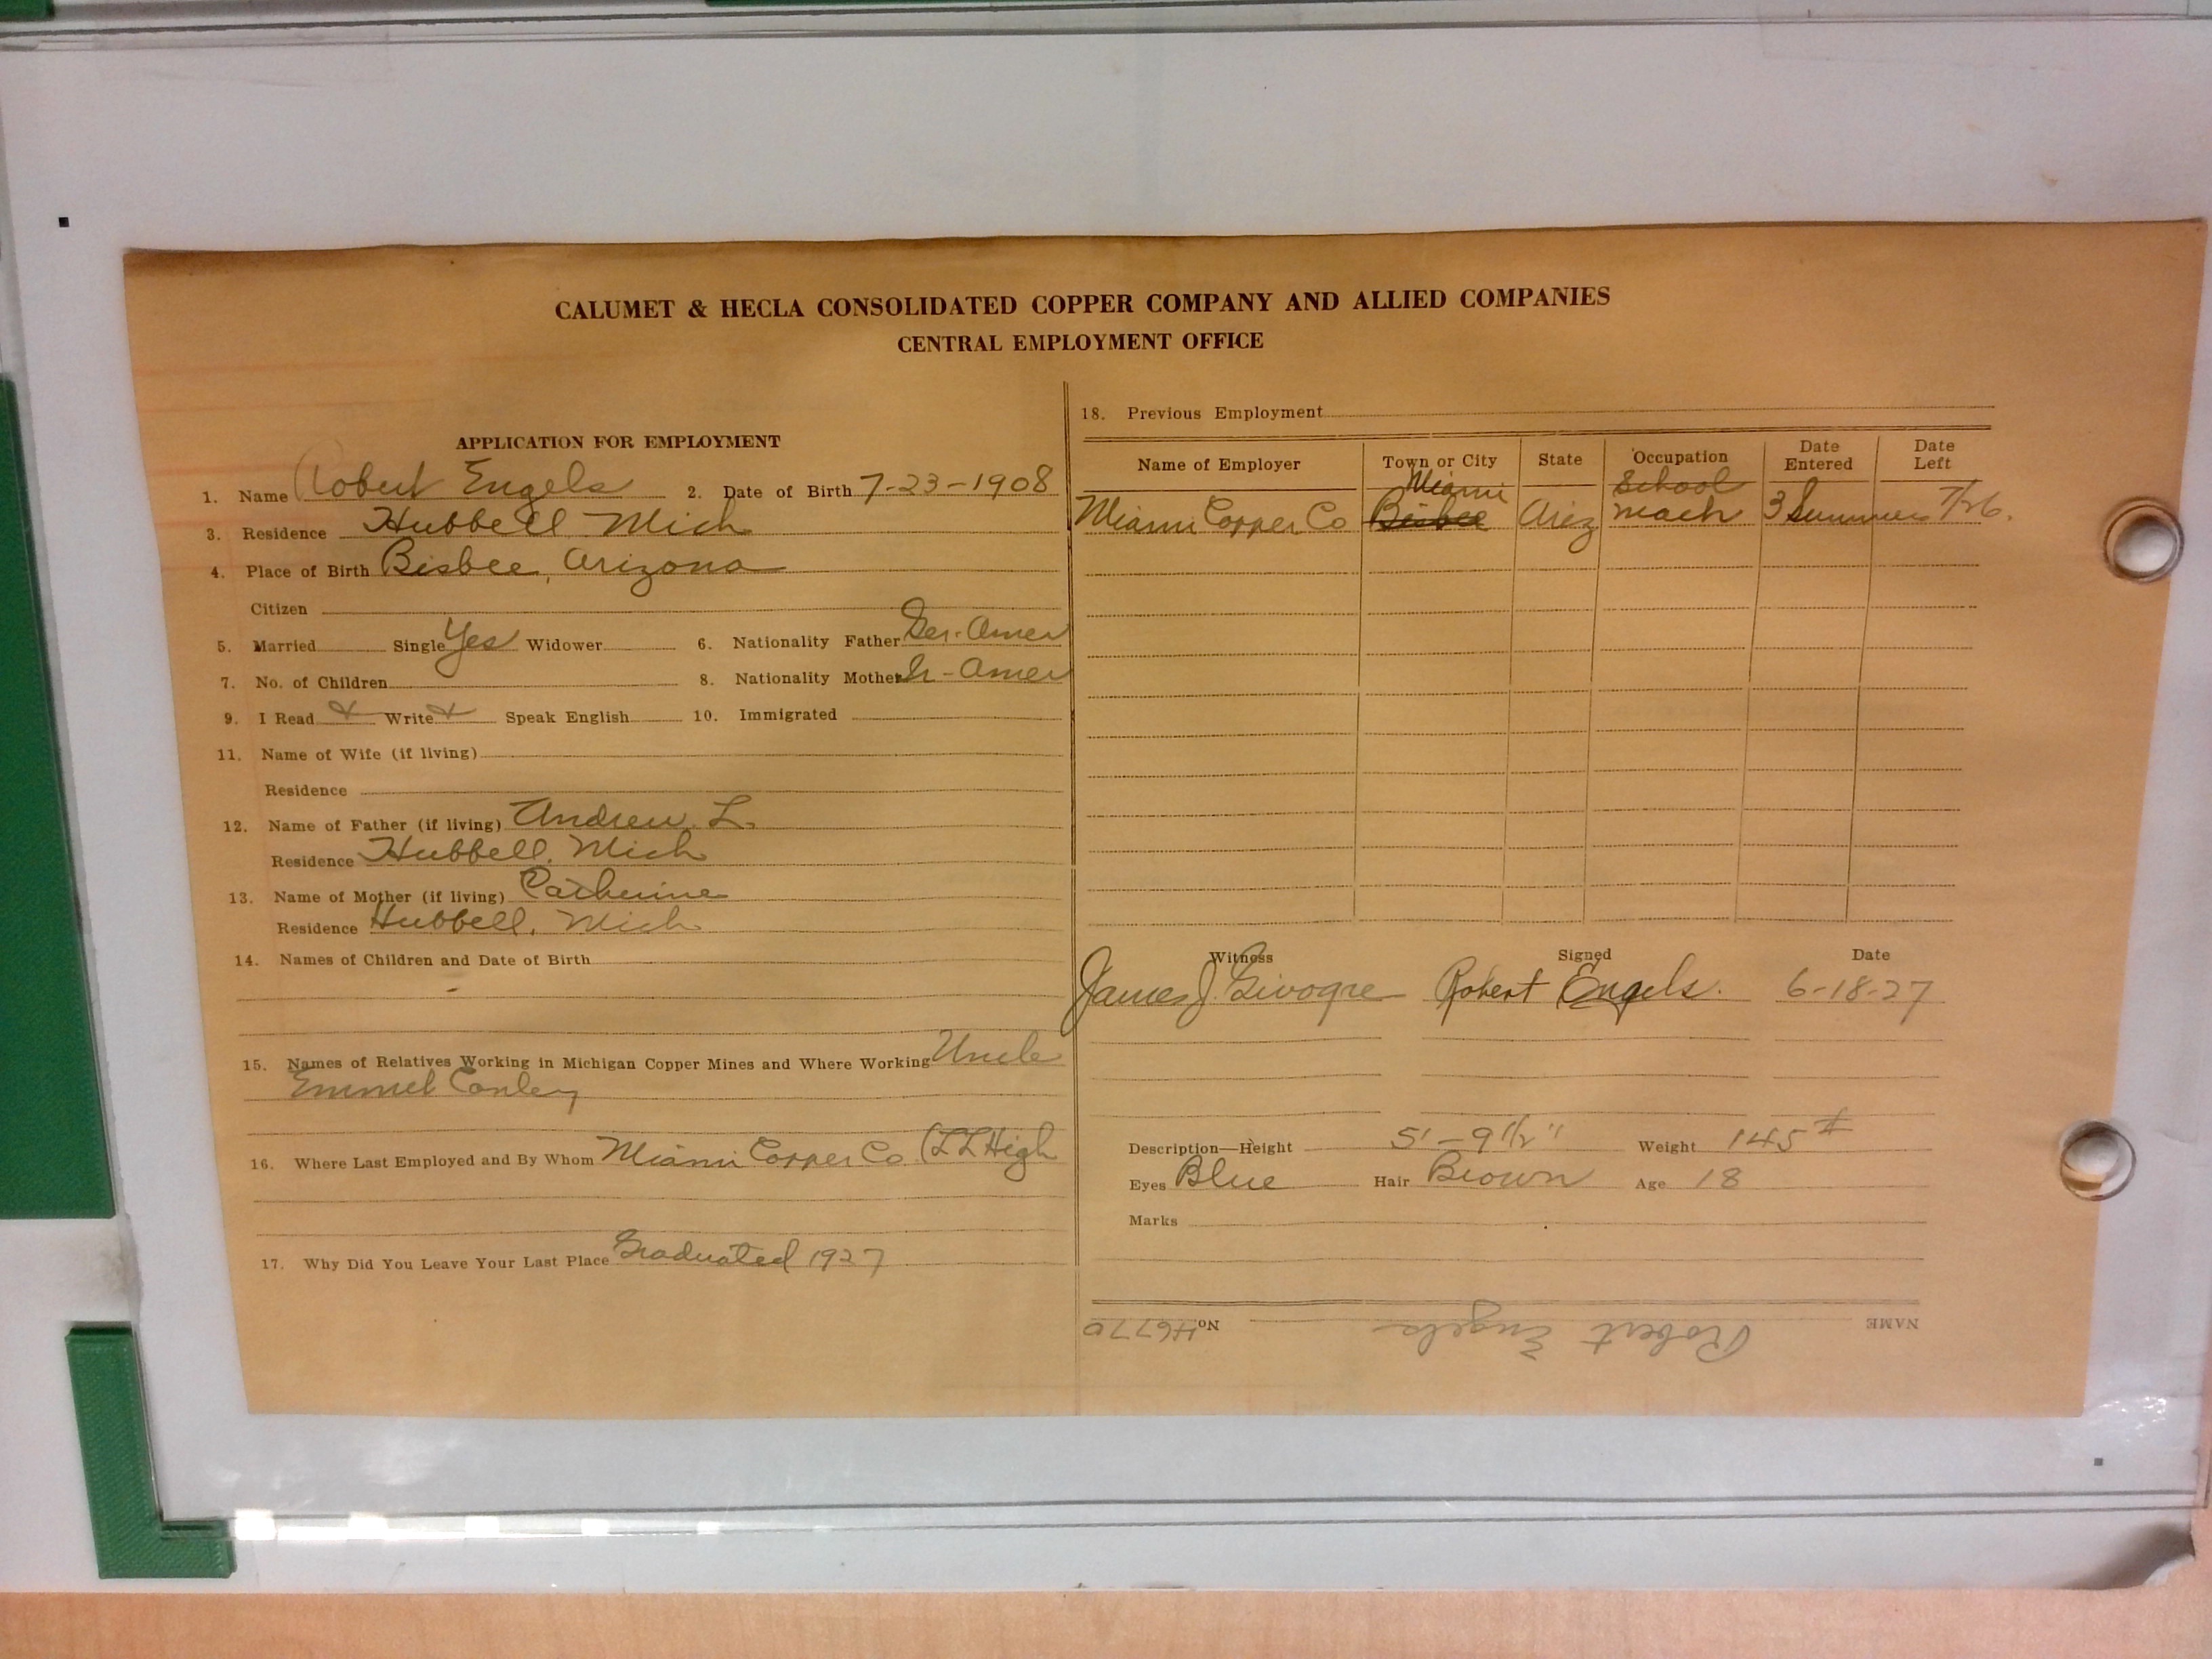 CALUMET & HECLA CONSOLIDATED COPPER COMPANY AND ALLIED COMPANIES
CENTRAL EMPLOYMENT OFFICE
APPLICATION FOR EMPLOYMENT
1. Name Robert Engels 2. Date of Birth 7-23-1908
3. Residence Hubbell Mich
4. Place of Birth Bisbee, Arizona
Citizen
5. Married Single Yes Widower 6. Nationality Father Ger-Amer
7. No. of Children 8. Nationality Mother Ir-Amer
9. I Read Write Speak English 10. Immigrated
11. Name of Wife (if living)
Residence
12. Name of Father (if living) Andrew L.
Residence Hubbell, Mich
13. Name of Mother (if living) Catherine
Residence Hubbell, Mich
14. Names of Children and Date of Birth
-
15. Names of Relatives Working in Michigan Copper Mines and Where Working Uncle
Emmet Conley
16. Where Last Employed and By Whom Miami Copper Co (LL High
17. Why Did You Leave Your Last Place Graduated 1927
18. Previous Employment
Name of Employer Town or City State Occupation Date Entered Date Left
Miami School
Miami Copper Co Bisbee Ariz Mach 3 Summers 7/26.
Witness Signed Date
James J. Robert Engels. 6-18-27
Description—Height 5'-9 1/2" Weight 145#
Eyes Blue Hair Brown Age 18
Marks
NAME Robert Engels No. H6770